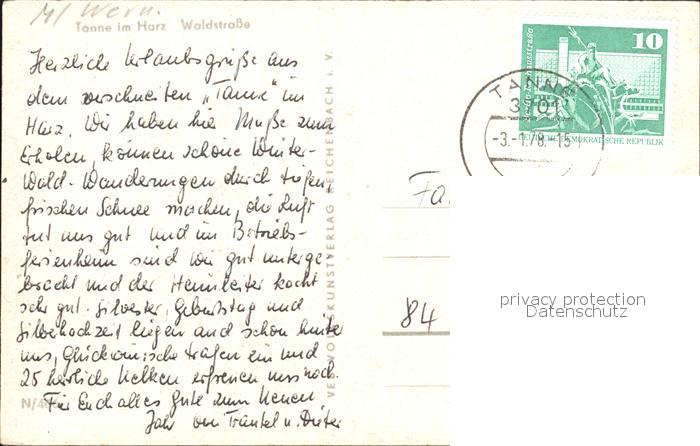 M/ Wern.
Tanne im Harz Waldstraße
Herzliche Urlaubsgrüße aus
dem verschneiten „Tanne" im
Harz. Wir haben hier Muße zum
Erholen, können schöne Winter-
Wald-Wanderungen durch tiefen
frischen Schnee machen, die Luft
tut uns gut und im Betriebs-
ferienheim sind wir gut unterge-
bracht und der Heimleiter kocht
sehr gut. Silvester, Geburtstag und
Silberhochzeit liegen auch schon hinter
uns, Glückwünsche trafen ein und
25 herrliche Nelken erfreuen uns noch.
Für Euch alles Gute zum Neuen
Jahr von Träutel u. Dieter
N/4
VERWO KUNSTVERLAG REICHENBACH I. V.
10
DEUTSCHE DEMOKRATISCHE REPUBLIK
TANNE
3701
-3.-1.78.-15
Fa
84
privacy protection
Datenschutz